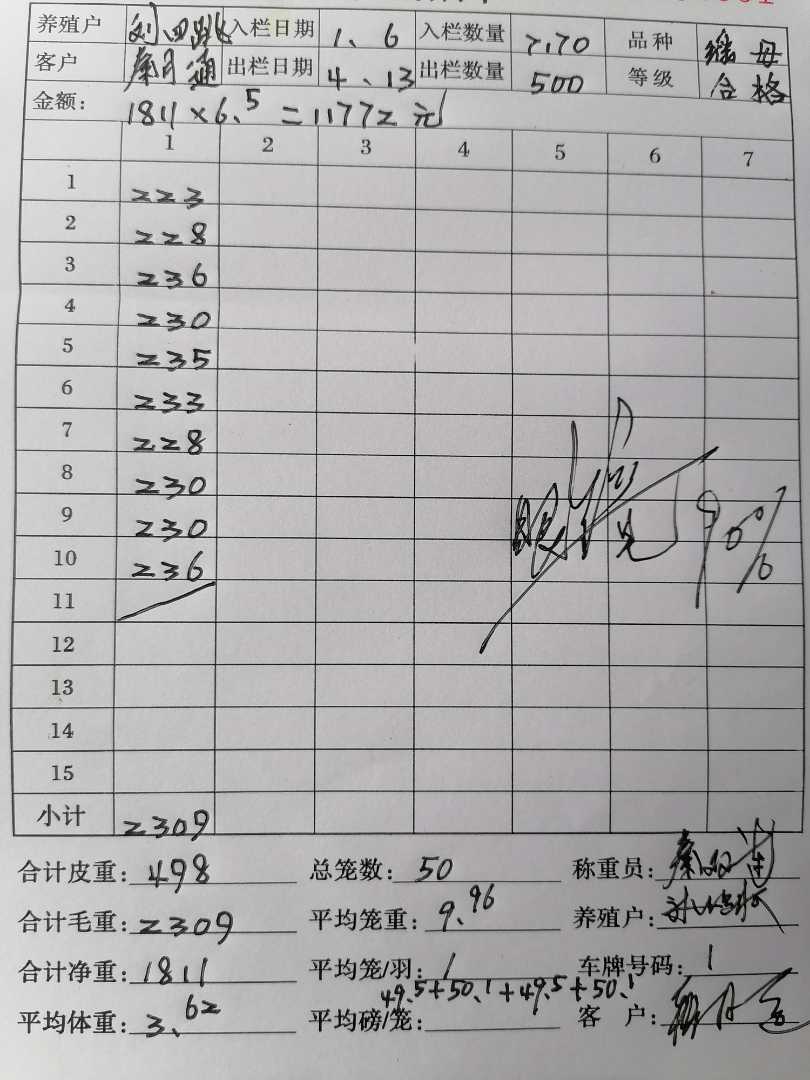 养殖户 刘四跳 入栏日期 1、6 入栏数量 7170 品种
客户 秦月通 出栏日期 4、13 出栏数量 500 等级 合格
金额: 1811×6.5=11772元
1 2 3 4 5 6 7
1 223
2 228
3 236
4 230
5 235
6 233
7 228
8 230
9 230
10 236
11
12
13
14
15
90%
小计 2309
合计皮重: 498 总笼数: 50 称重员:
合计毛重: 2309 平均笼重: 9.96 养殖户:
合计净重: 1811 平均笼/羽: 1 车牌号码: 1
49.5+50.1+49.5+50.1
平均体重: 3.62 平均磅/笼: 客 户: